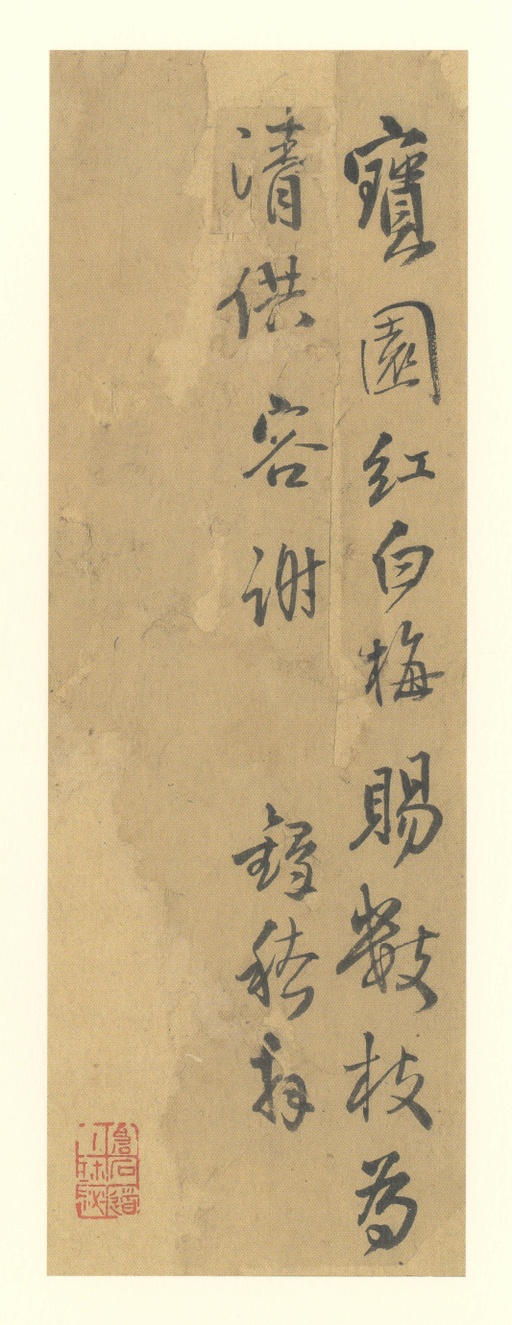 寶園紅白梅賜數枝為
清供容謝
拜